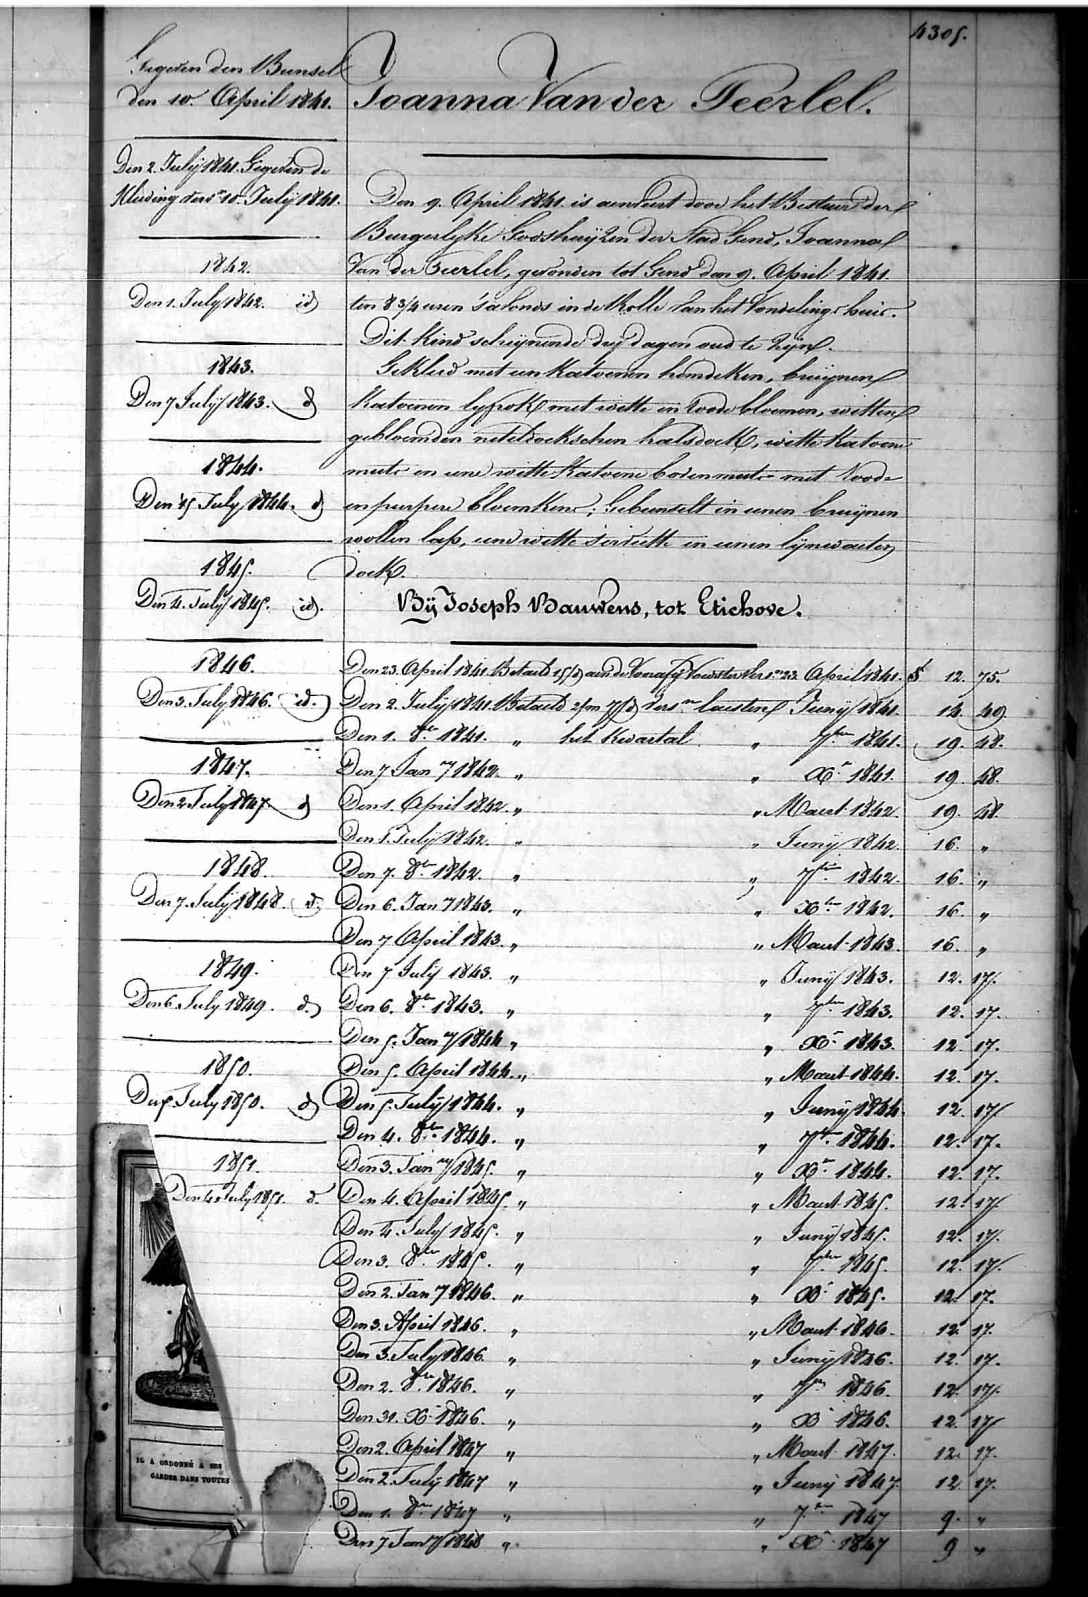 4305.
Gegeven den Bunsel
den 10. April 1841.
Joanna Van der Teerlel.
Den 2. July 1841. Gegeven de
Kleeding vers. 10. July 1841.
1842.
Den 1. July 1842. id
1843.
Den 7 July 1843. d
1844.
Den 5 July 1844. d
1845.
Den 4. July 1845. id.
1846.
Den 3. July 1846. id.
1847.
Den 2 July 1847. d
1848.
Den 7. July 1848. d.
1849.
Den 6. July 1849. d.
1850.
Den 5 July 1850. d
1851.
Den 4 July 1851. d.
Den 9. April 1841. is aenveert door het Bestuer der
Burgerlyke Godshuyzen der Stad Gend, Joanna
Van der Teerlel, gevonden tot Gend den 9. April 1841.
ten 8 3/4 uren 's avonds in de Rolle van het Vondelings huis.
Dit Kind schynende dry dagen oud te zyn.
Gekleed met een Katoenen hemdeken, bruynen
Katoenen lyfrok met witte en roode bloemen, witten
gebloemden neteldoekschen halsdoek, witte Katoene
muts en eene witte Katoene bovenmuts met roode
en purpere bloemkens; Gebunselt in eenen bruynen
wollen lap, eene witte serviette en eenen lynwaeten
doek.
By Joseph Bauwens, tot Etichove.
Den 23. April 1841. Betaeld 15/f aen de Voedster Vers. 23. April 1841. 12. 75.
Den 2. July 1841. Betaeld 2/m 7/d vers. lactsten Juny 1841. 14 49.
Den 1. 8bre 1841. " het Kwartal " 7bre 1841. 19. 48.
Den 7 Jany 1842. " " Xr 1841. 19 48.
Den 1. April 1842. " " Maert 1842. 19. 48.
Den 1. July 1842. " " Juny 1842. 16. "
Den 7. 8bre 1842. " " 7bre 1842. 16. "
Den 6. Jany 1843. " " Xbre 1842. 16. "
Den 7 April 1843. " " Maert 1843. 16. "
Den 7 July 1843. " " Juny 1843. 12. 17.
Den 6. 8bre 1843. " " 7bre 1843. 12. 17.
Den 5. Jany 1844 " " Xr 1843. 12. 17.
Den 5. April 1844. " " Maert 1844. 12. 17.
Den 5. July 1844. " " Juny 1844 12. 17
Den 4. 8bre 1844. " " 7bre 1844. 12. 17.
Den 3. Jany 1845. " " Xbre 1844. 12. 17.
Den 4. April 1845. " " Maert 1845. 12. 17
Den 4. July 1845. " " Juny 1845. 12. 17.
Den 3. 8bre 1845. " " 7bre 1845. 12. 17.
Den 2. Jany 1846. " " Xr 1845. 12. 17.
Den 3. April 1846. " " Maert 1846. 12. 17.
Den 3. July 1846. " " Juny 1846. 12. 17.
Den 2. 8bre 1846. " " 7bre 1846. 12. 17.
Den 31. Xr 1846. " " Xr 1846. 12. 17
Den 2. April 1847 " " Maert 1847. 12. 17.
Den 2. July 1847 " " Juny 1847. 12. 17.
Den 1. 8bre 1847 " " 7bre 1847 9. "
Den 7 Jany 1848 " " Xr 1847 9 "
IL A ORDONNÉ A SES
GARDER DANS TOUTES